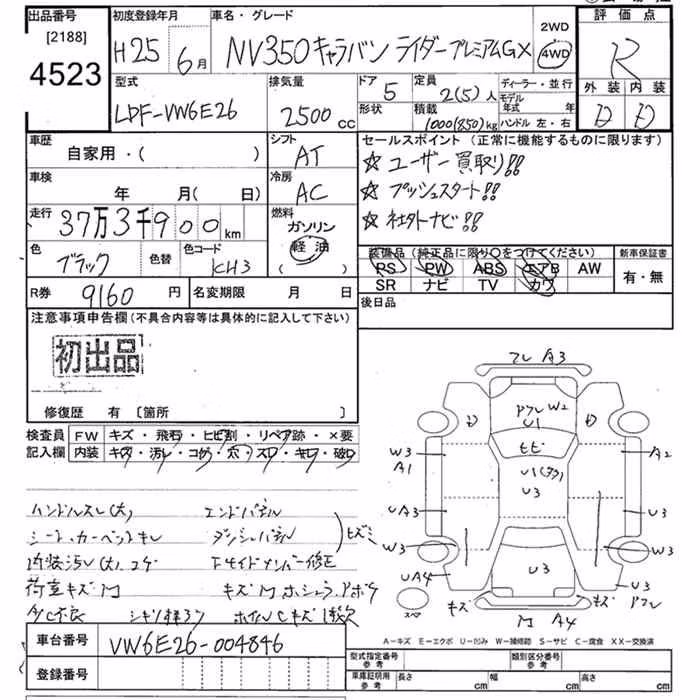 出品番号
[2188]
4523
初度登録年月
H25 6月
車名・グレード
NV350キャラバン ライダープレミアムGX
2WD
4WD
評価点
R
外装 内装
D D
型式
LDF-VW6E26
排気量
2500 cc
ドア 5
形状
定員 2(5)人
積載 1000(850)kg
ディーラー・並行
モデル年式 年
ハンドル 左・右
車歴
自家用・( )
シフト
AT
車検
年 月(日)
冷房
AC
走行
37万3千900km
燃料
ガソリン
軽油
( )
色
ブラック
色替
色コード
KH3
R券 9160円
名変期限 月 日
セールスポイント(正常に機能するものに限ります)
☆ユーザー買取り!!
☆プッシュスタート!!
☆社外ナビ!!
装備品(純正品に限り○をつけてください)
PS PW ABS エアB AW
SR ナビ TV カワ
新車保証書
有・無
後日品
注意事項申告欄(不具合内容等は具体的に記入して下さい)
初出品
修復歴 有〔箇所 〕
検査員記入欄
FW キズ・飛石・ヒビ割・リペア跡・×要
内装 キズ・汚レ・コゲ・穴・スレ・キレ・破レ
ハンドルスレ(大) エンドパネル
シート、カーペットキレ ダッシュパネル
内装汚レ(大)、コゲ 下サイドメンバー修正
荷室キズM
A/C不良
フレ A3
アフレ W2
U1
D D
ヒビ
W3
A1
A2
U3
UA3
U3
W3 W3
UA4 U3 U3
キズ キズ アフレ
スペ
M A4
A-キズ E-エクボ U-凹み W-補修跡 S-サビ C-腐食 XX-交換済
車台番号 VW6E26-004846
登録番号
型式指定番号 参考
類別区分番号 参考
車庫証明用 参考 長さ cm 幅 cm 高さ cm